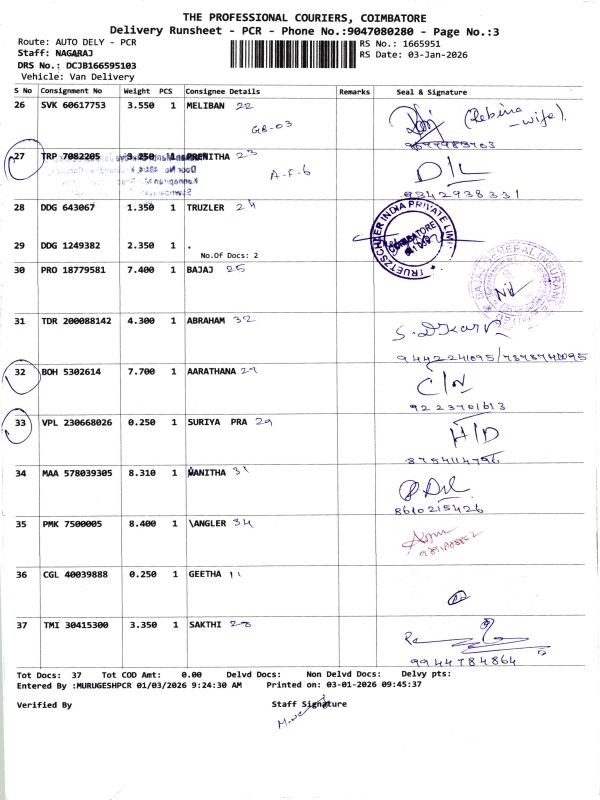 THE PROFESSIONAL COURIERS, COIMBATORE
Delivery Runsheet - PCR - Phone No.:9047080280 - Page No.:3
Route: AUTO DELY - PCR
RS No.: 1665951
Staff: NAGARAJ
RS Date: 03-Jan-2026
DRS No.: DCJB166595103
Vehicle: Van Delivery
S No Consignment No Weight PCS Consignee Details Remarks Seal & Signature
26 SVK 60617753 3.550 1 MELIBAN 22 (Rebina
GB-03 -wife)
27 TRP 7082205 3.250 1 PRENITHA 23 D/L
A-F-6 9342938331
28 DDG 643067 1.350 1 TRUZLER 24
TRUETZSCHLER INDIA PRIVATE LIMI
COIMBATORE
29 DDG 1249382 2.350 1 .
No.Of Docs: 2
30 PRO 18779581 7.400 1 BAJAJ 25
BAJAJ GENERAL INSURAN
31 TDR 200088142 4.300 1 ABRAHAM 32
9442241095/7373741095
32 BOH 5302614 7.700 1 AARATHANA 27 C/N
9223701613
33 VPL 230668026 0.250 1 SURIYA PRA 29 H/D
8754114796
34 MAA 578039305 8.310 1 WANITHA 31
8610215426
35 PMK 7500005 8.400 1 \ANGLER 34
36 CGL 40039888 0.250 1 GEETHA 11
37 TMI 30415300 3.350 1 SAKTHI 28
9944784864
Tot Docs: 37 Tot COD Amt: 0.00 Delvd Docs: Non Delvd Docs: Delvy pts:
Entered By :MURUGESHPCR 01/03/2026 9:24:30 AM Printed on: 03-01-2026 09:45:37
Verified By Staff Signature